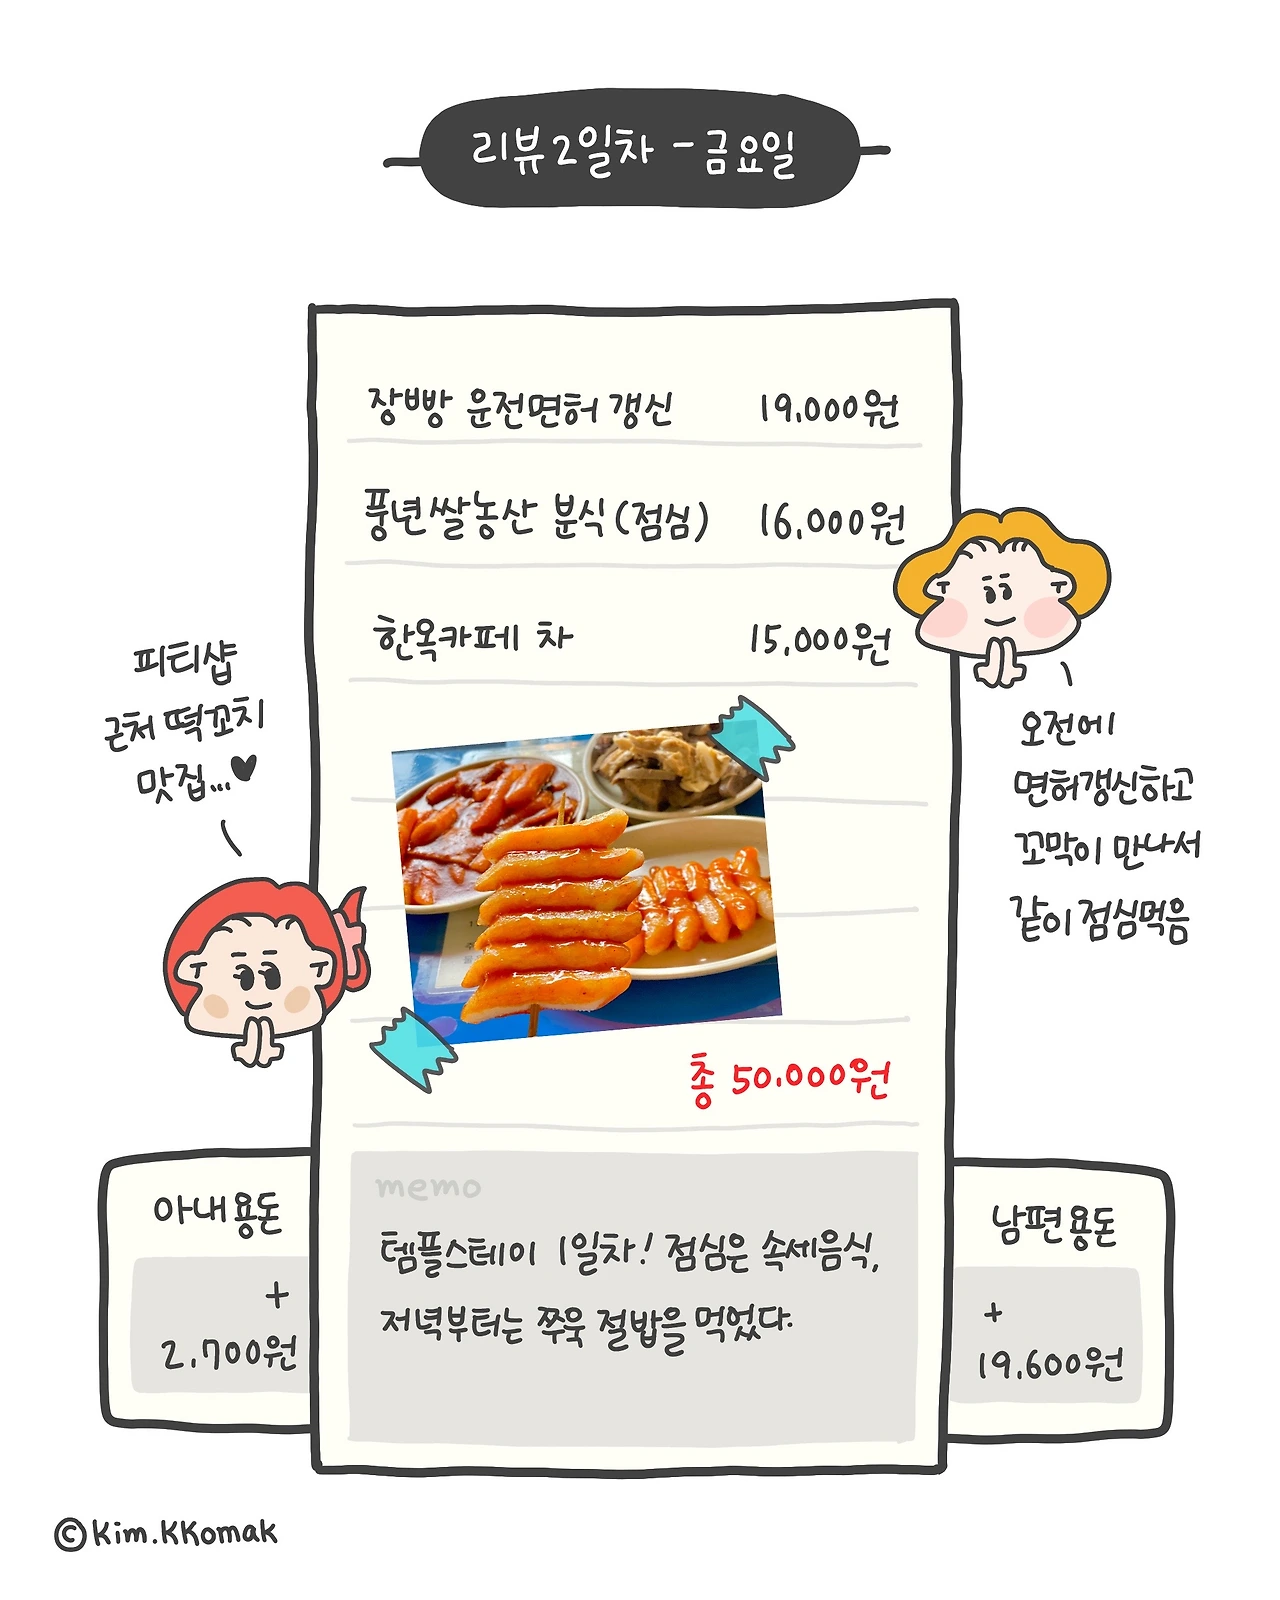 리뷰2일차 - 금요일
장빵 운전면허 갱신 19,000원
풍년쌀농산 분식(점심) 16,000원
한옥카페 차 15,000원
피티샵
근처 떡꼬치
맛집...♥
오전에
면허갱신하고
꼬막이 만나서
같이 점심먹음
총 50,000원
memo
템플스테이 1일차! 점심은 속세음식,
저녁부터는 쭈욱 절밥을 먹었다.
아내용돈
+
2,700원
남편용돈
+
19,600원
©Kim.KKomak